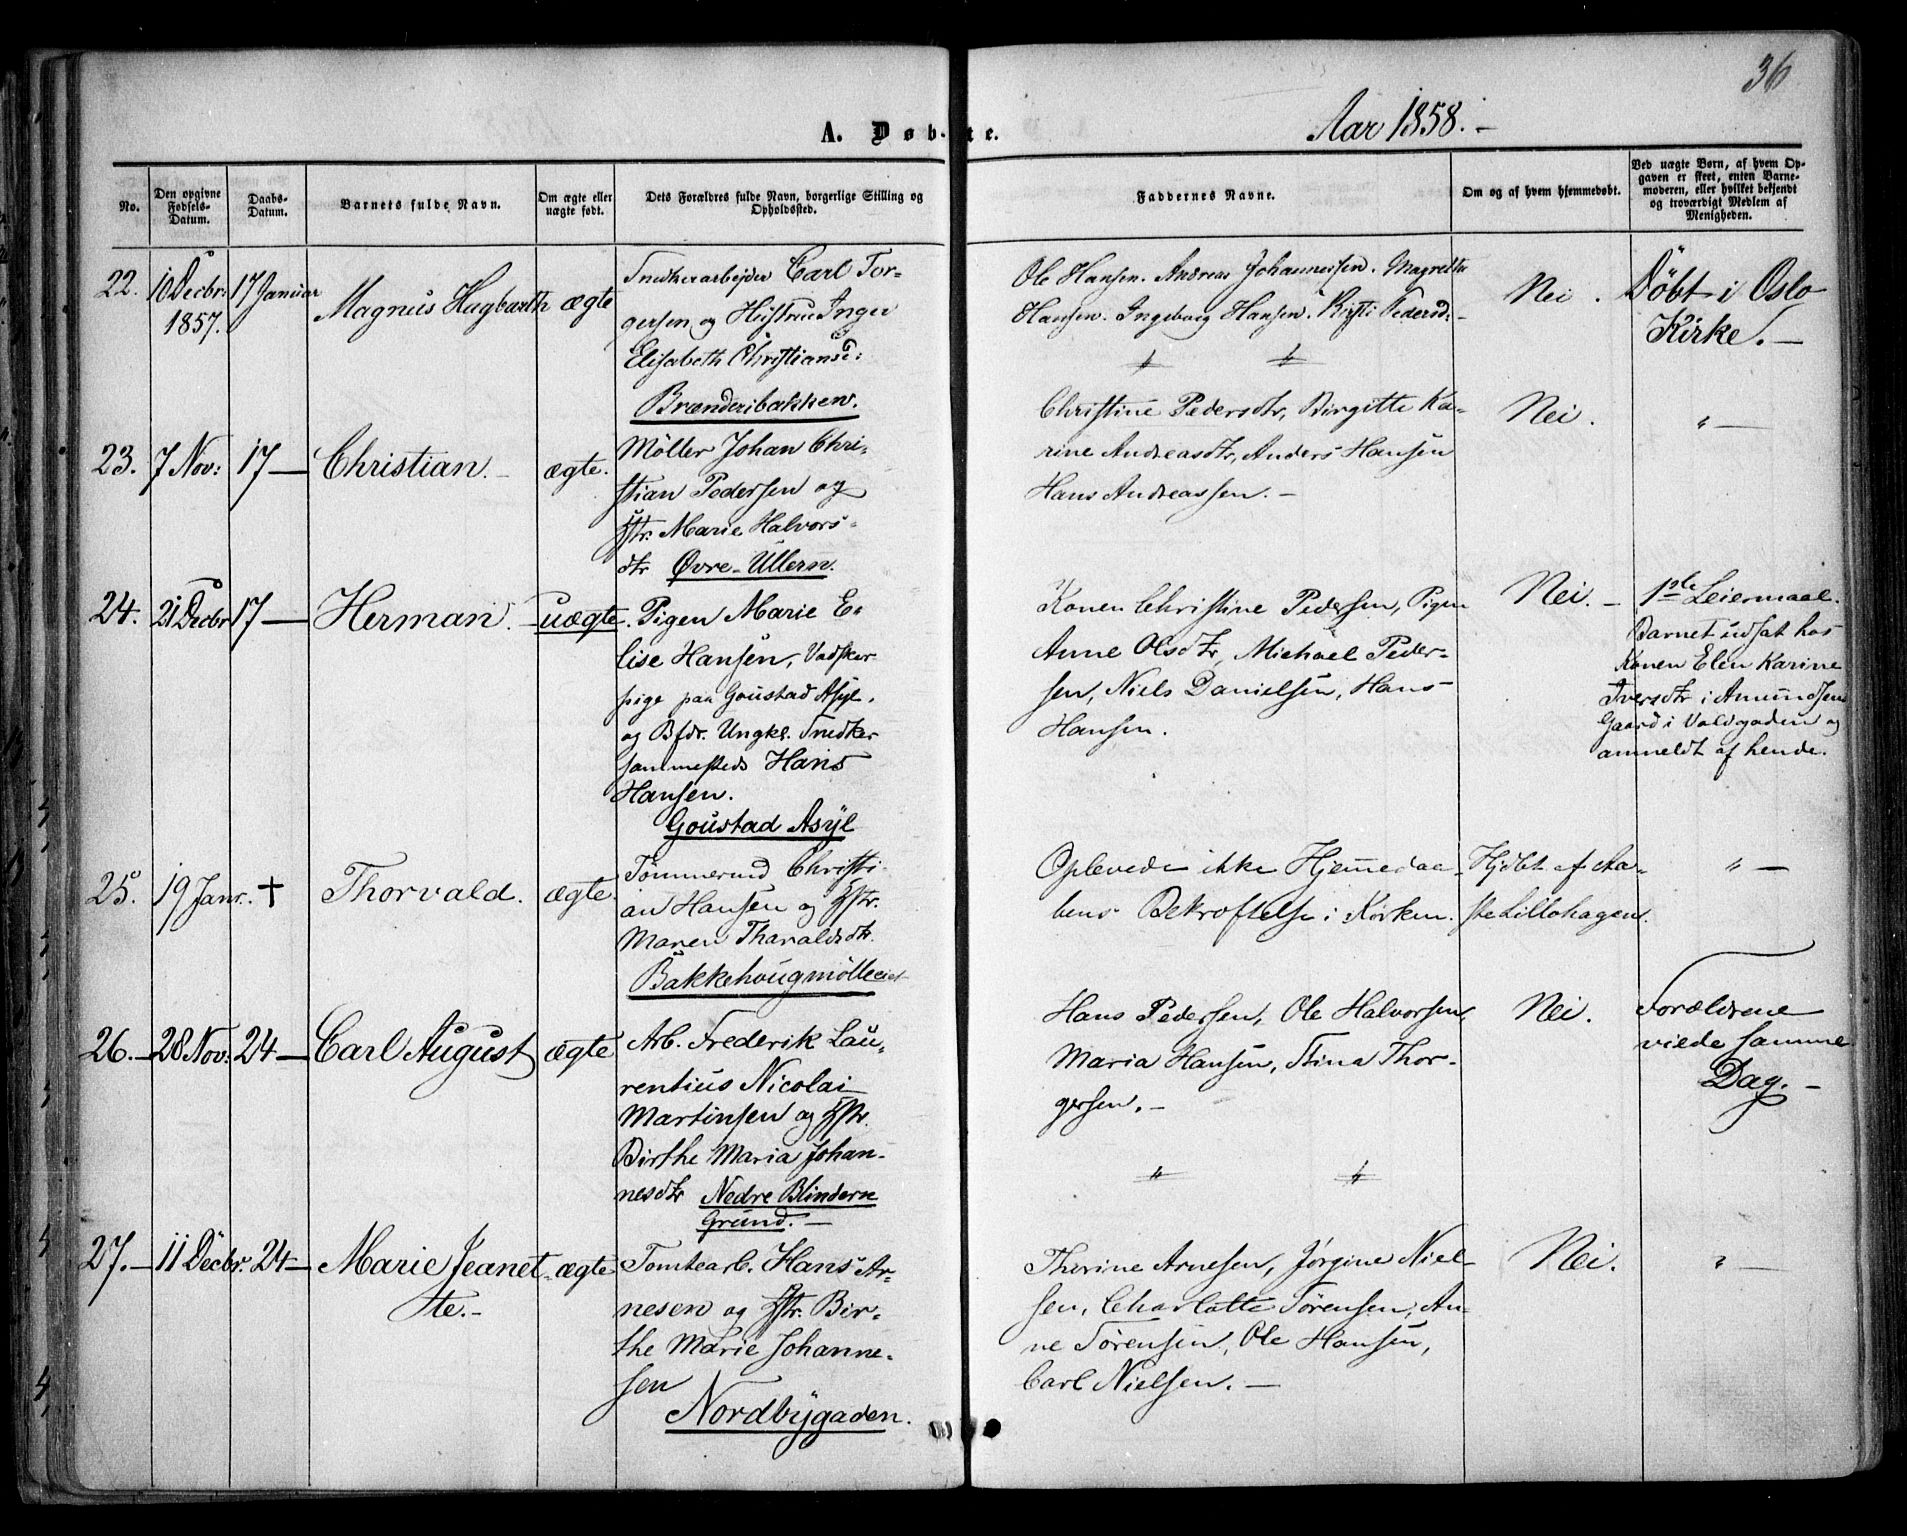 36
A. Døbte.
Aar 1858.-
No.
Den opgivne
Fødsels-
Datum.
Daabs-
Datum.
Barnets fulde Navn.
Om ægte eller
uægte født.
Dets Forældres fulde Navn, borgerlige Stilling og
Opholdssted.
Faddernes Navne.
Om og af hvem hjemmedøbt.
Ved uægte Børn, af hvem Op-
gaven er skeet, enten Barne-
moderen, eller hvilket bekjendt
og troværdigt Medlem af
Menigheden.
22. 10 Decbr: 1857. 17 Januar Magnus Hagbarth ægte
Snedkerarbejder Carl Tor-
gersen og Hustru Inger
Elisabeth Christiansd:
Brænderibakken.
Ole Hansen. Andreas Johannessen. Magrethe
Hansen. Ingeborg Hansen. Kisti Pedersd:-
Nei.
Døbt i Oslo
Kirke.-
23. 7 Nov: 17 — Christian.- ægte.
Møller Johan Chri-
stian Pedersen og
Hstr. Marie Halvors-
dtr Øvre-Ullern.
Christine Pedersdtr, Birgitte Ka-
rine Andreasdtr, Anders Hansen
Hans Andreassen.-
Nei.
" —
24. 21 Decbr 17 — Herman.- uægte.
Pigen Marie E-
lise Hansen, Vadsker-
pige paa Goustad Asyl.
og Bfdr. Ungkl. Snedker
sammesteds Hans
Hansen.
Goustad Asyl
Konen Christine Pedersen, Pigen
Anne Olsdtr, Michael Peder-
sen, Niels Danielsen, Hans
Hansen.
Nei.-
1ste Leiermaal.
Barnet udsat hos
Konen Elen Karine
Iversdtr i Amundsen
Gaard i Voldgaden og
anmeldt af hende.
25. 19 Janr. † Thorvald. ægte.
Tømmermd Christi-
an Hansen og Hstr.
Maren Tharaldsdtr.
Bakkehougmølleeiet
Oplevede ikke Hjemmedaa-
bens Bekræftelse i Kirken.
Hjdbt af Aa-
ste Lillohagen.
" —
26.- 28 Nov: 24 — Carl August ægte
Arb. Frederik Lau-
rentius Nicolai
Martinsen og Hstr.
Birthe Maria Johan-
nesdtr Nedre Blindern
Grund.-
Hans Pedersen, Ole Halvorsen,
Maria Hansen, Stina Thor-
gersen.-
Nei.
Forældrene
viede samme
Dag.-
27.- 11 Decbr. 24 — Marie Jeanet-
te.-
ægte
Tomtearb. Hans Ar-
nesen og Hstr. Bir-
the Marie Johanne-
sen
Nordbygaden.
Thorine Arnesen, Jørgine Niel-
sen, Charlotte Sørensen, An-
ne Sørensen, Ole Hansen,
Carl Nielsen.-
Nei.
" —